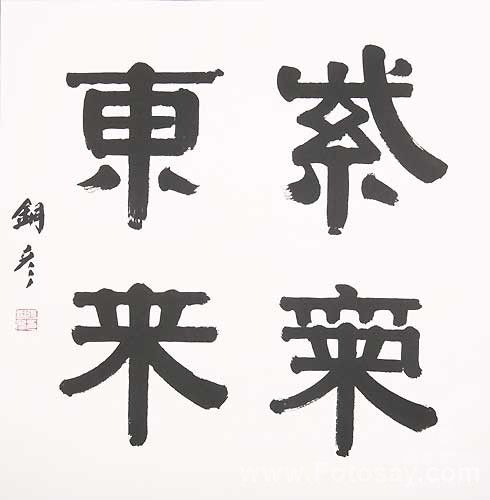 紫氣
東来
www.Fotosay.com